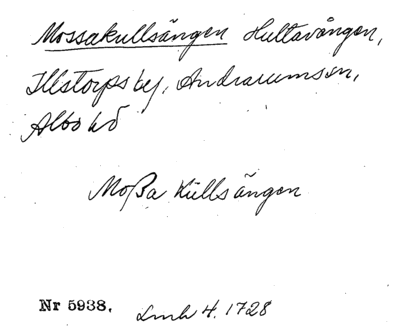 Mossakullsängen Hultavången,
Illstorps by, Andrarumssn,
Albo hd
Moßa Kullsängen
Nr 5938. Lmh 4. 1728